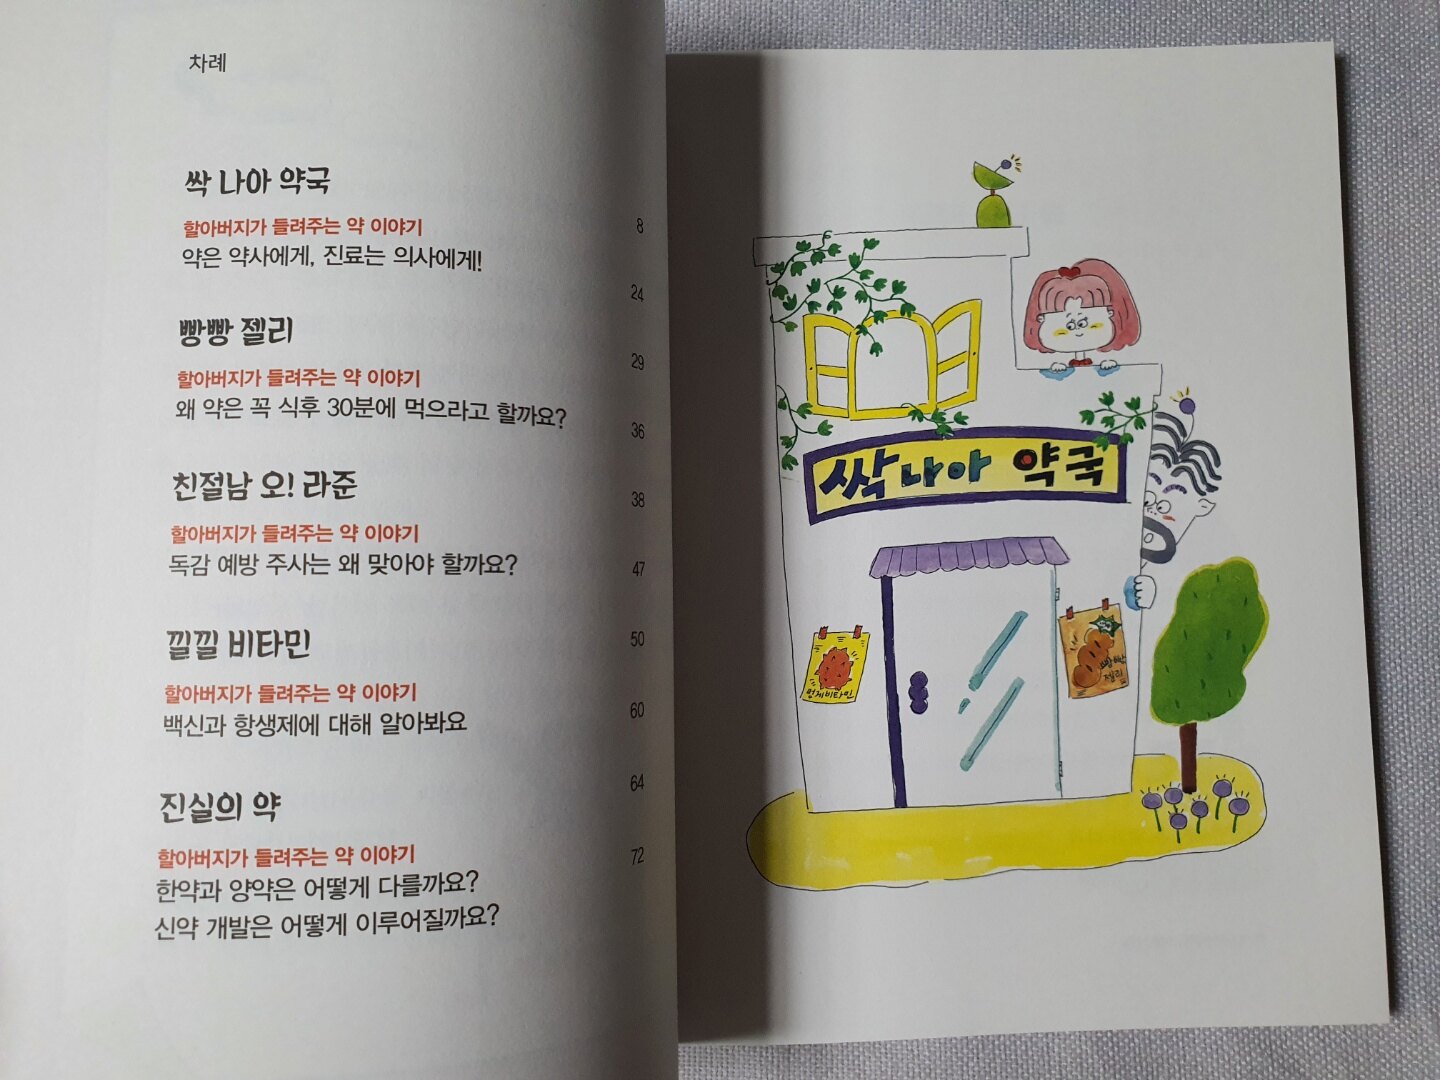 차례
싹 나아 약국
할아버지가 들려주는 약 이야기 8
약은 약사에게, 진료는 의사에게!
24
빵빵 젤리
29
할아버지가 들려주는 약 이야기
왜 약은 꼭 식후 30분에 먹으라고 할까요?
36
친절남 오! 라준
38
할아버지가 들려주는 약 이야기
독감 예방 주사는 왜 맞아야 할까요?
47
낄낄 비타민
50
할아버지가 들려주는 약 이야기
백신과 항생제에 대해 알아봐요
60
진실의 약
64
할아버지가 들려주는 약 이야기
72
한약과 양약은 어떻게 다를까요?
신약 개발은 어떻게 이루어질까요?
싹 나아 약국
빵빵
젤리